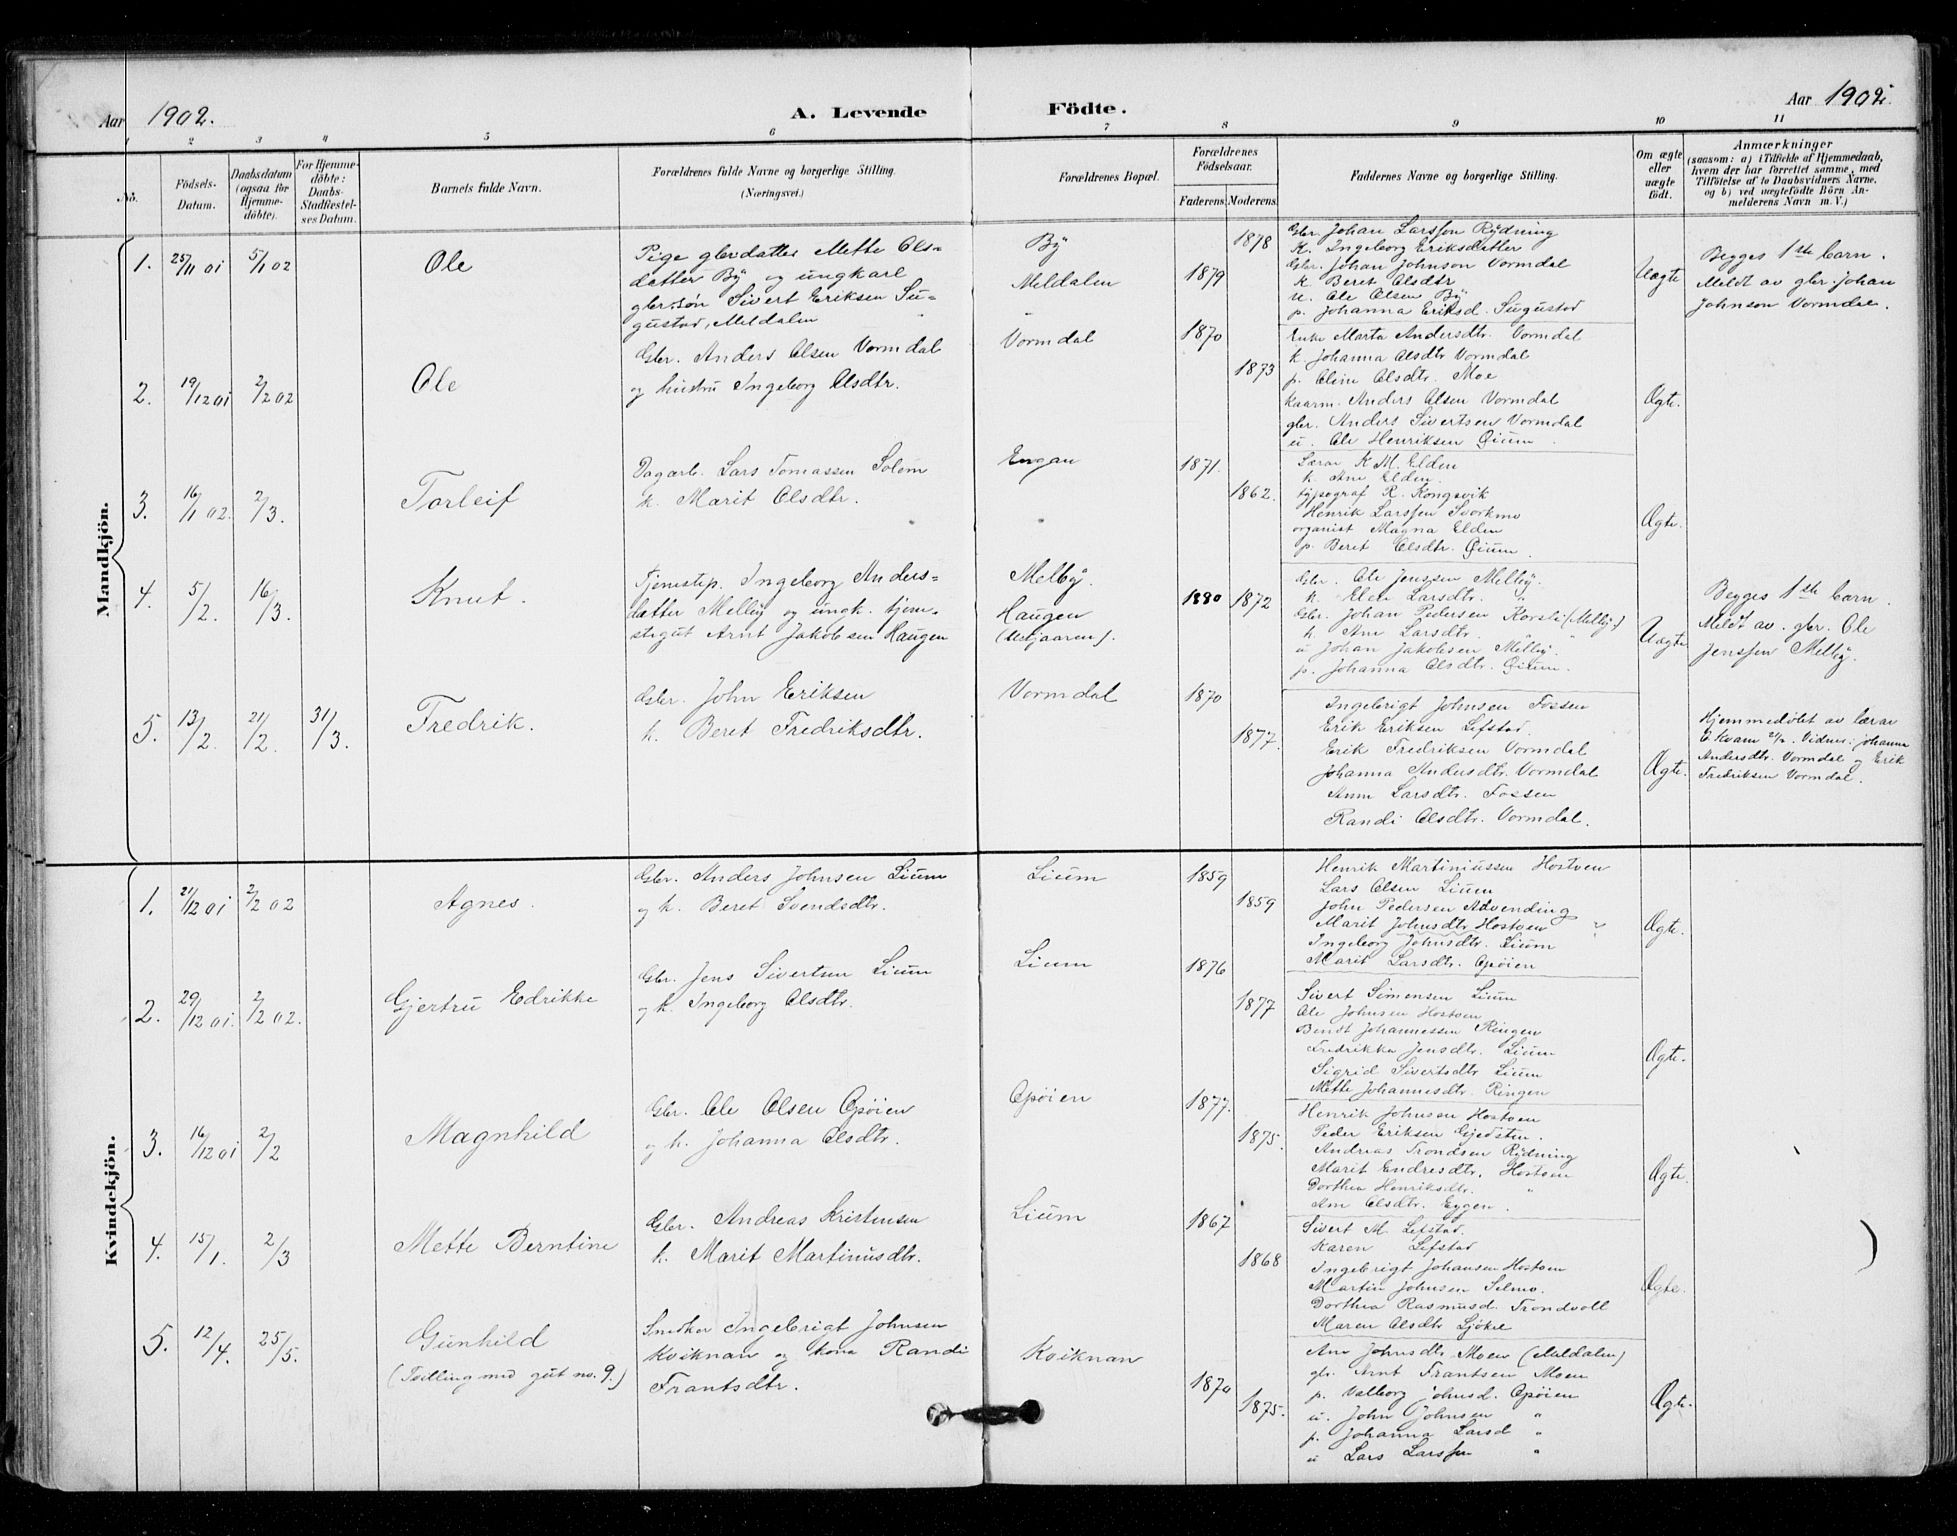 Aar 1902. A. Levende Födte. Aar 1902.
1 2 3 4 5 6 7 8 9 10 11
No.
Födsels-Datum.
Daabsdatum (ogsaa for Hjemme-döbte).
For Hjemme-döbte: Daabs-Stadfæstel-ses Datum.
Barnets fulde Navn.
Forældrenes fulde Navne og borgerlige Stilling.
(Næringsvei.)
Forældrenes Bopæl.
Forældrenes Födselsaar.
Faderens. Moderens.
Faddernes Navne og borgerlige Stilling.
Om ægte eller uægte födt.
Anmærkninger
(saasom: a) i Tilfælde af Hjemmedaab,
hvem der har forrettet samme, med
Tilföielse af to Daabsvidners Navne.
og b) ved uægtefödte Börn An-
melderens Navn m. V.)
Mandkjön.
1. 25/11 01 5/1 02 Ole
Pige gbrdatter Mette Ols=
datter Bÿ og ungkarl
gbr.søn Sivert Eriksen Su=
gustad, Meldalen
Bÿ
Meldalen
1878
1879
Gbr. Johan Larssen Rÿdning
K. Ingeborg Eriksdatter
Gbr. Johan Johnson Vormdal
k. Beret Olsdtr
u. Ole Olsen Bÿ
p. Johanna Eriksd. Sugustad
Uægte
Begges 1ste barn.
Meldt av gbr. Johan
Johnson Vormdal.
2. 19/12 01 2/2 02 Ole
Gbr. Anders Olsen Vormdal
og hustru Ingeborg Olsdtr.
Vormdal
1870
1873
Enke Marta Andersdtr. Vormdal
k. Johanna Olsdtr Vormdal
p. Eline Olsdtr. Moe
Kaarm. Anders Olsen Vormdal
gbr. Anders Sivertsen Vormdal
u. Ole Henriksen Øium.
Ægte.
3. 16/1 02. 2/3. Torleif
Dagarb. Lars Tomassen Solem
k. Marit Olsdtr.
Engan
1871.
1862.
Lærar K. M. Elden
k. Ane Elden.
typograf R. Kongsvik
Henrik Larssen Svorkmo
organist Magna Elden
p. Beret Olsdtr. Øium.
Ægte.
4. 5/2. 16/3. Knut.
Tjenestep. Ingeborg Anders=
datter Melbÿ og ungk. tjene-
stegut Arnt Jakobsen Haugen
Melbÿ.
Haugen
1880 1872
Gbr. Ole Jenssen Melbÿ.
k. Elen Larsdtr. "
Gbr. Johan Pedersen Korsli (Melbÿ)
k. Ane Larsdtr. "
u Johan Jakobsen Melbÿ.
p. Johanna Olsdtr. Øium.
Uægte
Begges 1ste barn.
Meldt av gbr. Ole
Jenssen Melbÿ.
5. 13/2. 21/2. 31/3. Fredrik.
Gbr. John Eriksen
k. Beret Fredriksdtr.
Vormdal
1870
1877.
Ingebrigt Johnsen Fossen
Erik Eriksen Lefstad.
Erik Fredriksen Vormdal
Johanna Andersdtr. Vormdal
Anne Larsdtr. Fossen
Randi Olsdtr. Vormdal.
Ægte.
Hjemmedøbt av lærar
E. Kvam 21/2. Vidner: Johanna
Andersdtr. Vormdal og Erik
Fredriksen Vormdal.
Kvindekjön.
1. 21/12 01 2/2 02 Agnes.
Gbr. Anders Johnsen Lium
og k. Beret Svendsdtr.
Lium
1859
1859
Henrik Martiniussen Hostoen
Lars Olsen Lium
John Pedersen Advending
Marit Johnsdtr. Hostoen
Ingeborg Johnsdtr. Lium
Marit Larsdtr. Opøien
Ægte.
2. 29/12 01. 2/2 02. Gjertru Edrikke
Gbr. Jens Sivertsen Lium
og k. Ingeborg Olsdtr.
Lium
1876
1877
Sivert Simensen Lium
Ole Johnsen Hostoen
Bendt Johannessen Ringen
Fredrikke Jensdtr. Lium
Sigrid Sivertsdtr Lium
Mette Johannesdtr. Ringen
Ægte.
3. 16/12 01 2/2 Magnhild
Gbr. Ole Olsen Opøien
og k. Johanna Olsdtr.
Opøien
1877.
1875.
Henrik Johnsen Hostoen
Peder Eriksen Gjedsten.
Andreas Trondsen Rÿdning
Marit Endresdtr. Hostoen
Dorthea Henriksdtr. "
Ane Olsdtr. Eggen.
Ægte.
4. 15/1. 2/3 Mette Berntine
Gbr. Andreas Kristensen
k. Marit Martinusdtr.
Lium
1867
1868
Sivert M. Lefstad.
Karen Lefstad
Ingebrigt Johansen Hostoen
Martin Johnsen Selmo.
Dorthea Rasmusd. Trondvoll
Maren Olsdtr
Ægte.
5. 12/4. 25/5. Gunhild
(Tvilling med gut no. 9.)
Snedker Ingebrigt Johnsen
Kviknan og kona Randi
Frantsdtr.
Kviknan
1870
1875.
Ane Johnsdtr. Moen (Meldalen)
gbr. Arnt Frantsen Moen
p. Valborg Johnsd. Opøien
u. John Johnsen "
p. Johanna Larsd "
u Lars Larssen "
Ægte.